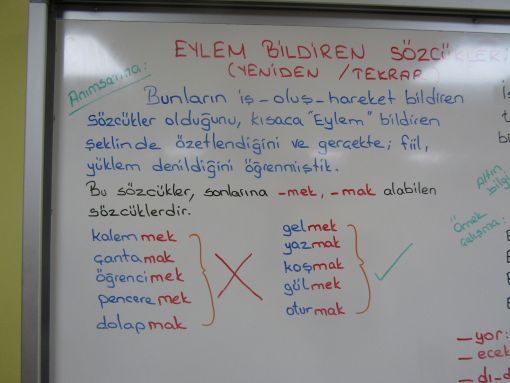 EYLEM BİLDİREN SÖZCÜKLER
(YENİDEN / TEKRAR)
Anımsatma:
Bunların iş-oluş-hareket bildiren
sözcükler olduğunu, kısaca "Eylem" bildiren
şeklinde özetlendiğini ve gerçekte; fiil,
yüklem denildiğini öğrenmiştik.
Bu sözcükler, sonlarına -mek, -mak alabilen
sözcüklerdir.
kalemmek
çantamak
öğrencimek
penceremek
dolapmak
gelmek
yazmak
koşmak
gülmek
oturmak
Altın
bilgi
Örnek
çalışma:
-yor:
-ecek
-dı-d